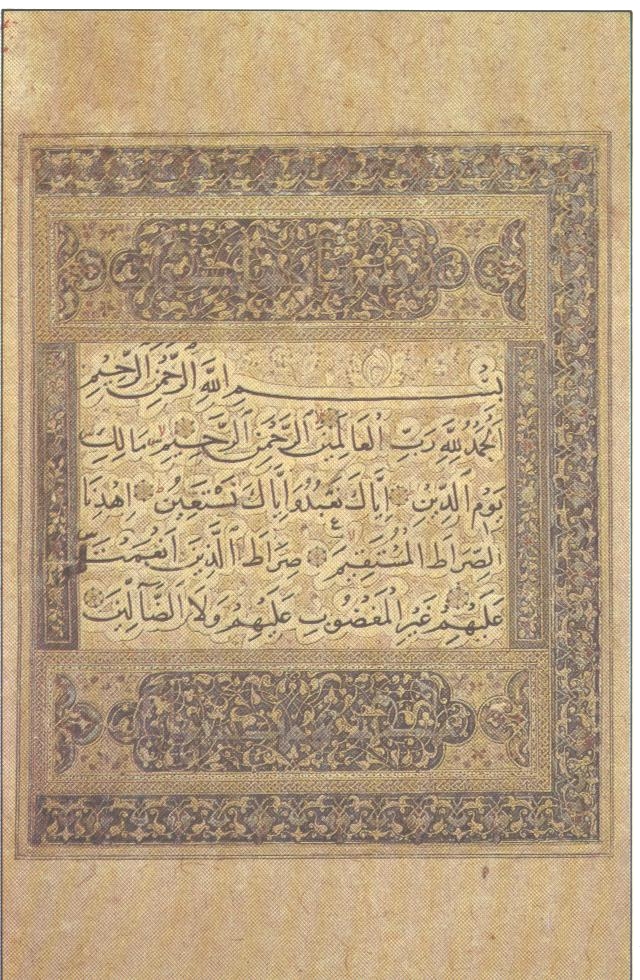 بِسْمِ اللَّهِ الرَّحْمَٰنِ الرَّحِيمِ
الْحَمْدُ لِلَّهِ رَبِّ الْعَالَمِينَ الرَّحْمَٰنِ الرَّحِيمِ مَالِكِ
يَوْمِ الدِّينِ إِيَّاكَ نَعْبُدُ وَإِيَّاكَ نَسْتَعِينُ اهْدِنَا
الصِّرَاطَ الْمُسْتَقِيمَ صِرَاطَ الَّذِينَ أَنْعَمْتَ
عَلَيْهِمْ غَيْرِ الْمَغْضُوبِ عَلَيْهِمْ وَلَا الضَّالِّينَ